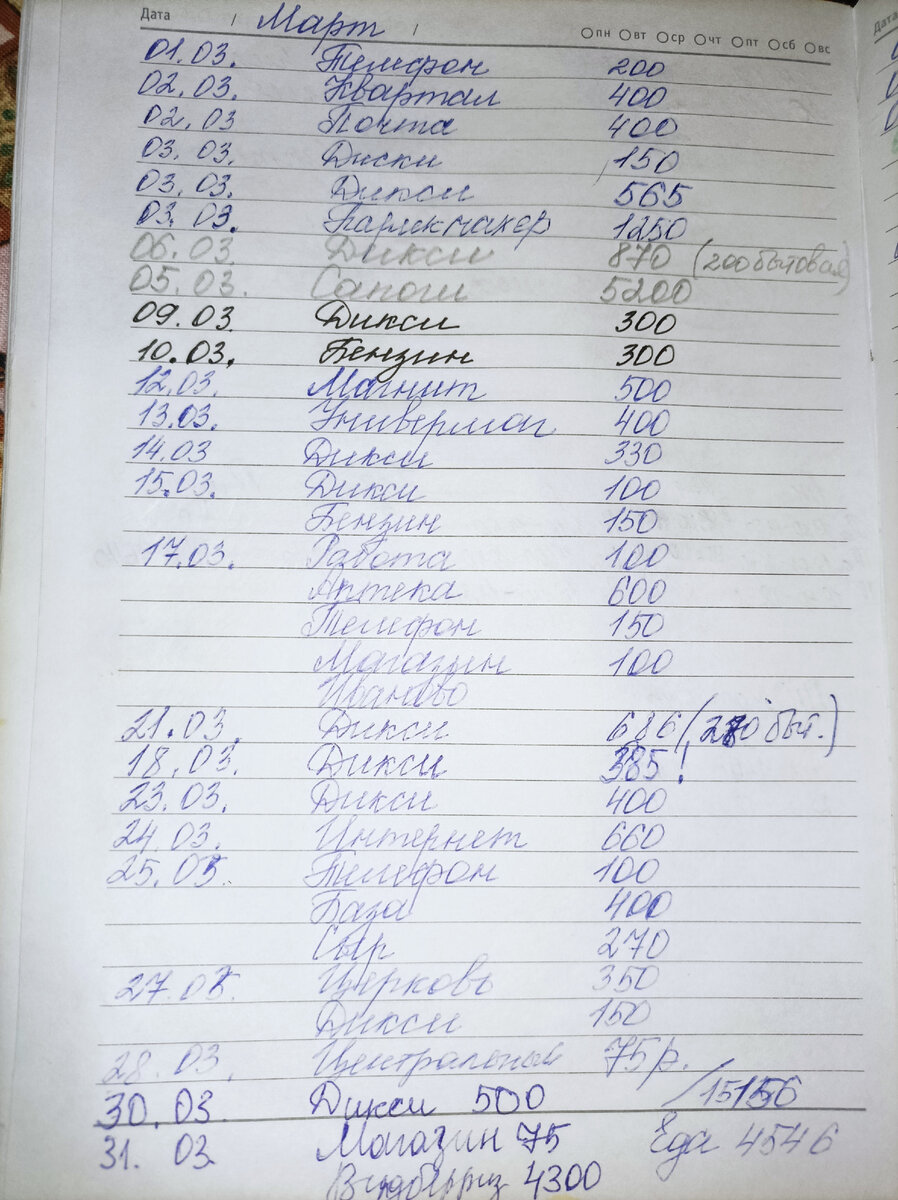 Дата / Март / ПН ВТ СР ЧТ ПТ СБ ВС
01.03. Телефон 200
02.03. Квартал 400
02.03 Почта 400
03.03. Диски 150
03.03. Дикси 565
03.03. Парикмахер 1250
06.03. Дикси 870 (200 бытовая)
05.03. Сапоги 5200
09.03. Дикси 300
10.03. Бензин 300
12.03. Магнит 500
13.03. Универмаг 400
14.03 Дикси 330
15.03. Дикси 100
Бензин 150
17.03. Работа 100
Аптека 600
Телефон 150
Магазин 100
Иваново
21.03. Дикси 686 (270 быт.)
18.03. Дикси 385!
23.03. Дикси 400
24.03. Интернет 660
25.03. Телефон 100
База 400
Сыр 270
27.03. Церковь 350
Дикси 150
28.03. Центральный 75 р.
30.03. Дикси 500 /15156
31.03 Магазин 75 Еда 4546
Вилдберриз 4300